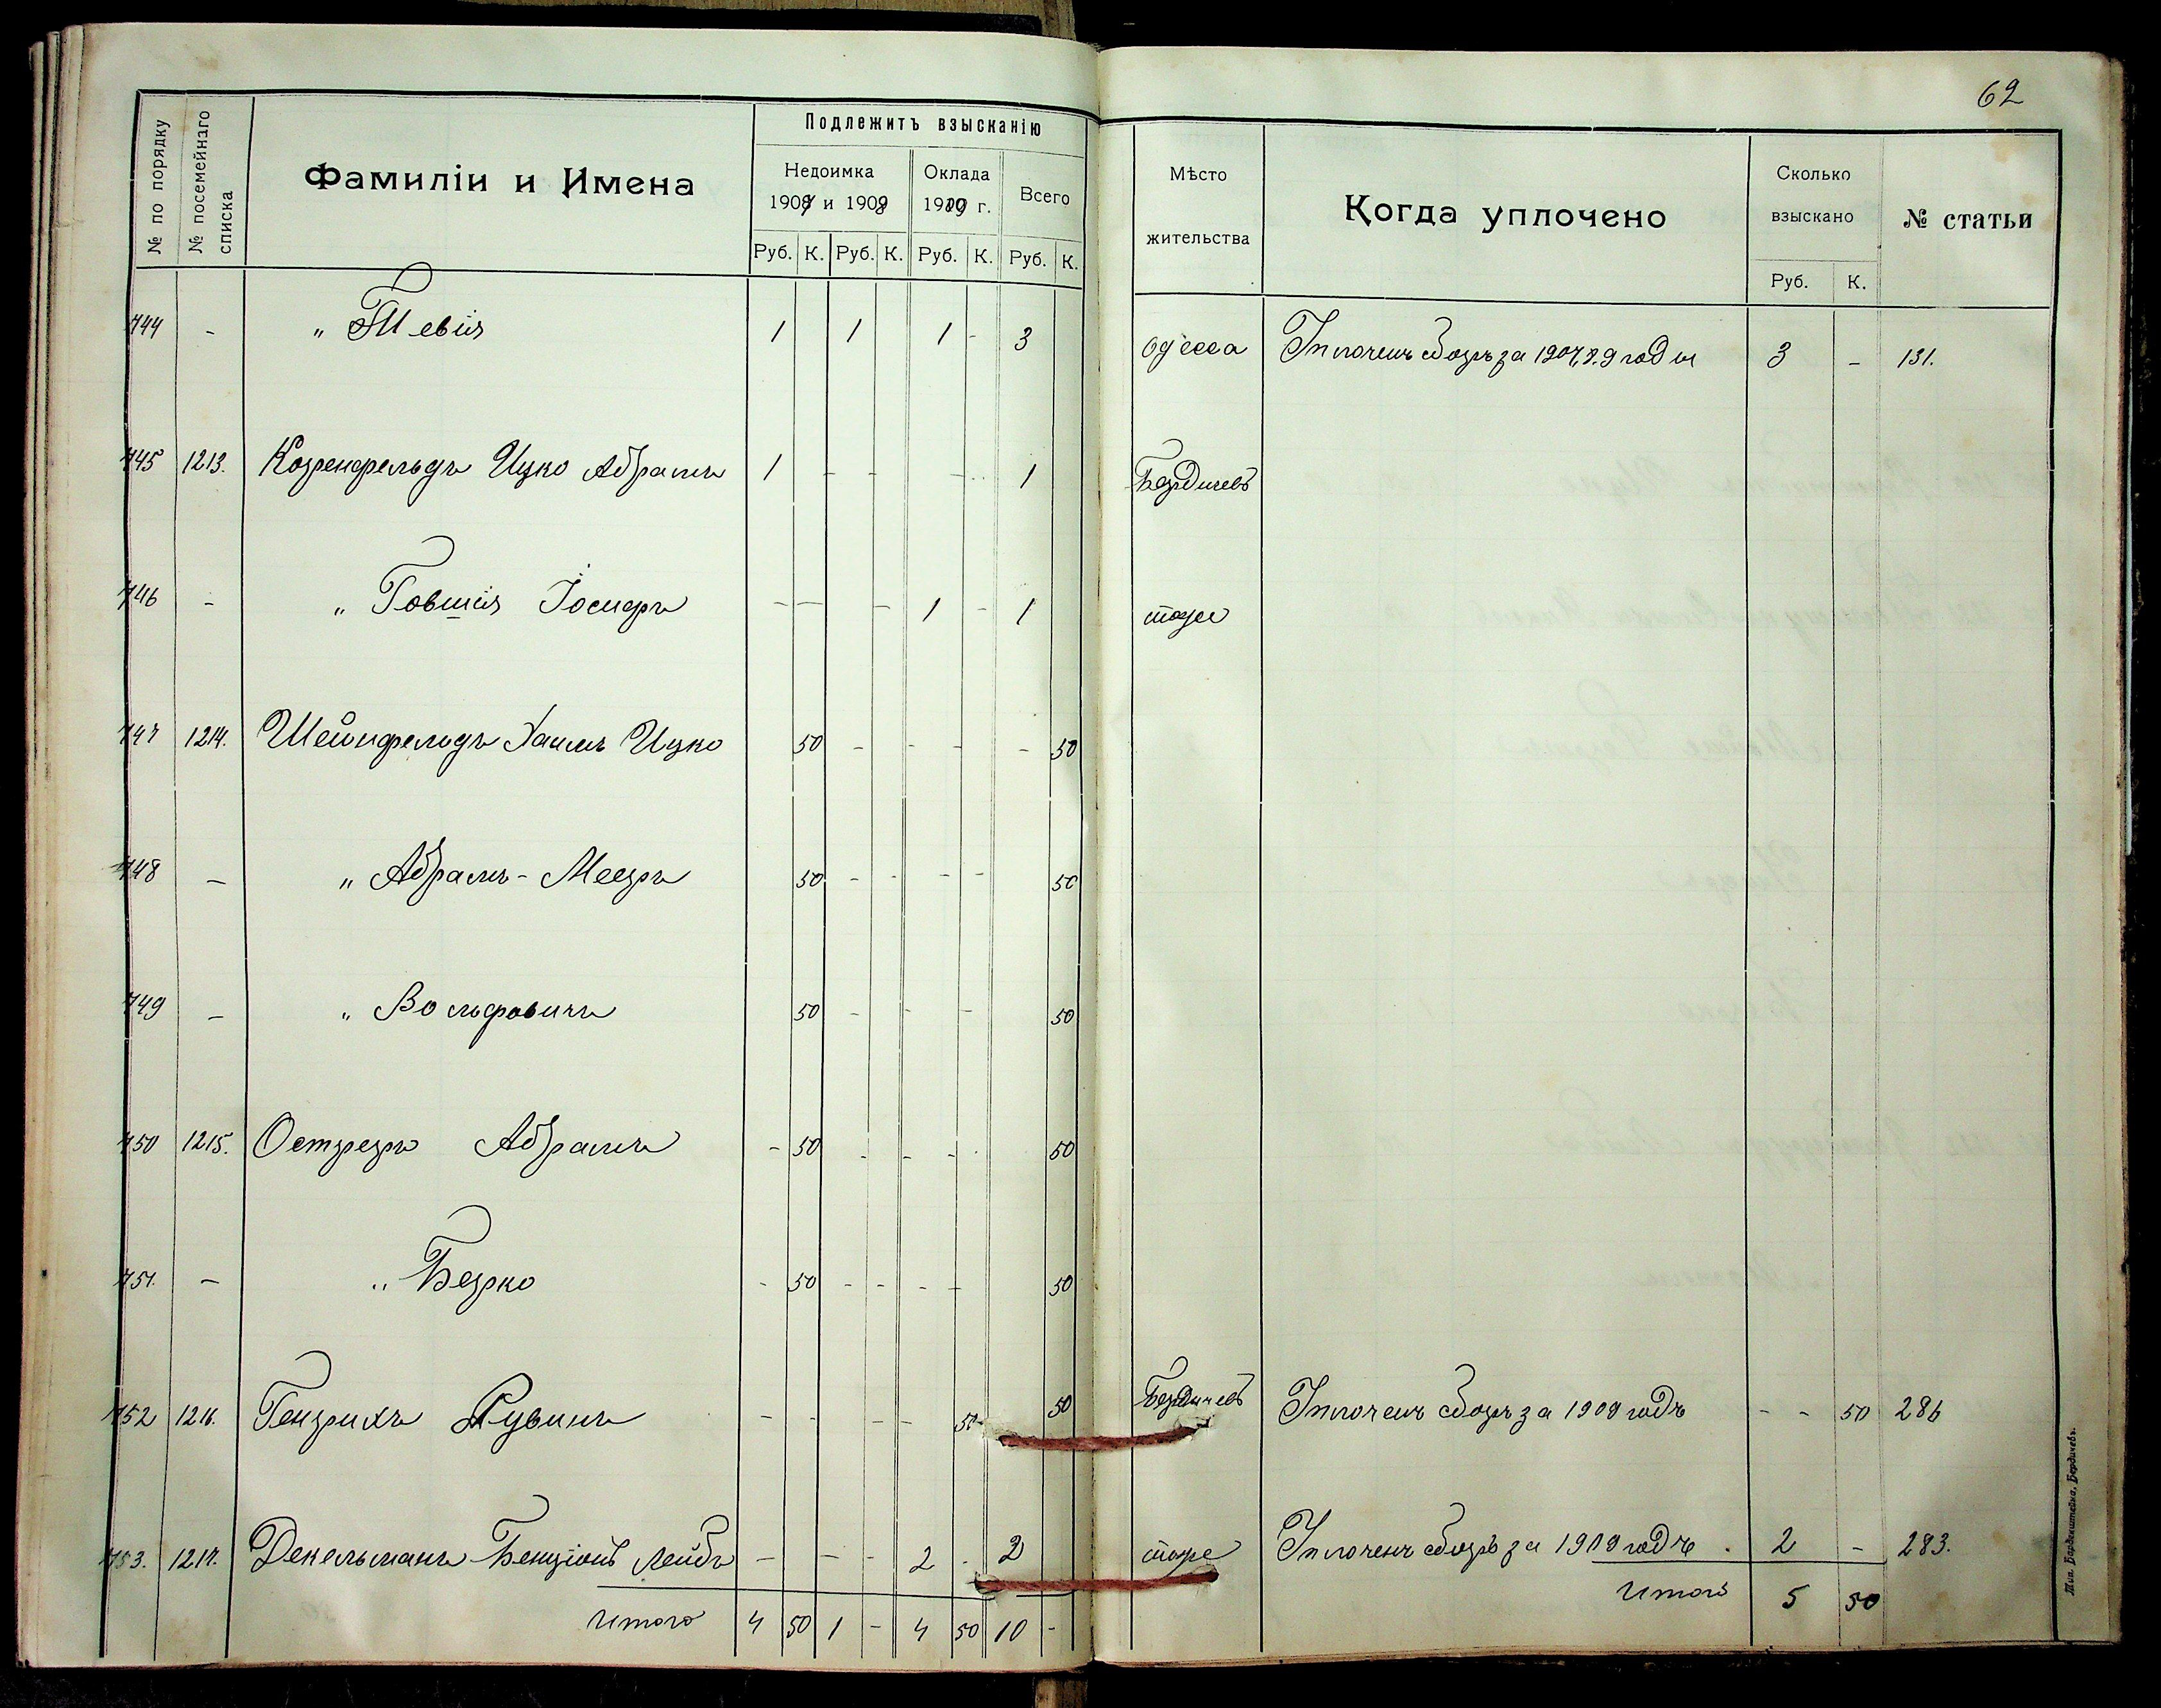 62
Подлежитъ взысканію
№ по порядку
№ посемейнаго списка
Фамиліи и Имена
Недоимка
1907 и 1908
Оклада
1909 г.
Всего
Руб. К. Руб. К. Руб. К. Руб. К.
Мѣсто
жительства
Когда уплочено
Сколько
взыскано
Руб. К.
№ статьи
744 - " Тевія 1 1 1 - 3 Одесса Уплоченъ сборъ за 1907, 8, 9 годы 3 - 131.
745 1213. Коренфельдъ Ицко Абрамъ 1 - - - 1 Бердичевъ
746 - " Говшія Іосифъ - - - 1 - 1 тоже
747 1214. Шейнфельдъ Хаимъ Ицко 50 - - - - 50
748 - " Абрамъ-Мееръ 50 - - - - 50
749 - " Вольфовичъ 50 - - - 50
750 1215. Остреръ Абрамъ - 50 - - - 50
751. - " Берко - 50 - - - - 50
752 1216. Генрихъ Рувинъ - - - - 50 50 Бердичевъ Уплоченъ сборъ за 1909 годъ - - 50 286
753. 1217. Декельманъ Бенціонъ Лейбъ - - - 2 - 2 тоже Уплоченъ сборъ за 1909 годъ. 2 - 283.
Итого 4 50 1 - 4 50 10 -
Итого 5 50
Тип. Барденштейна, Бердичевъ.